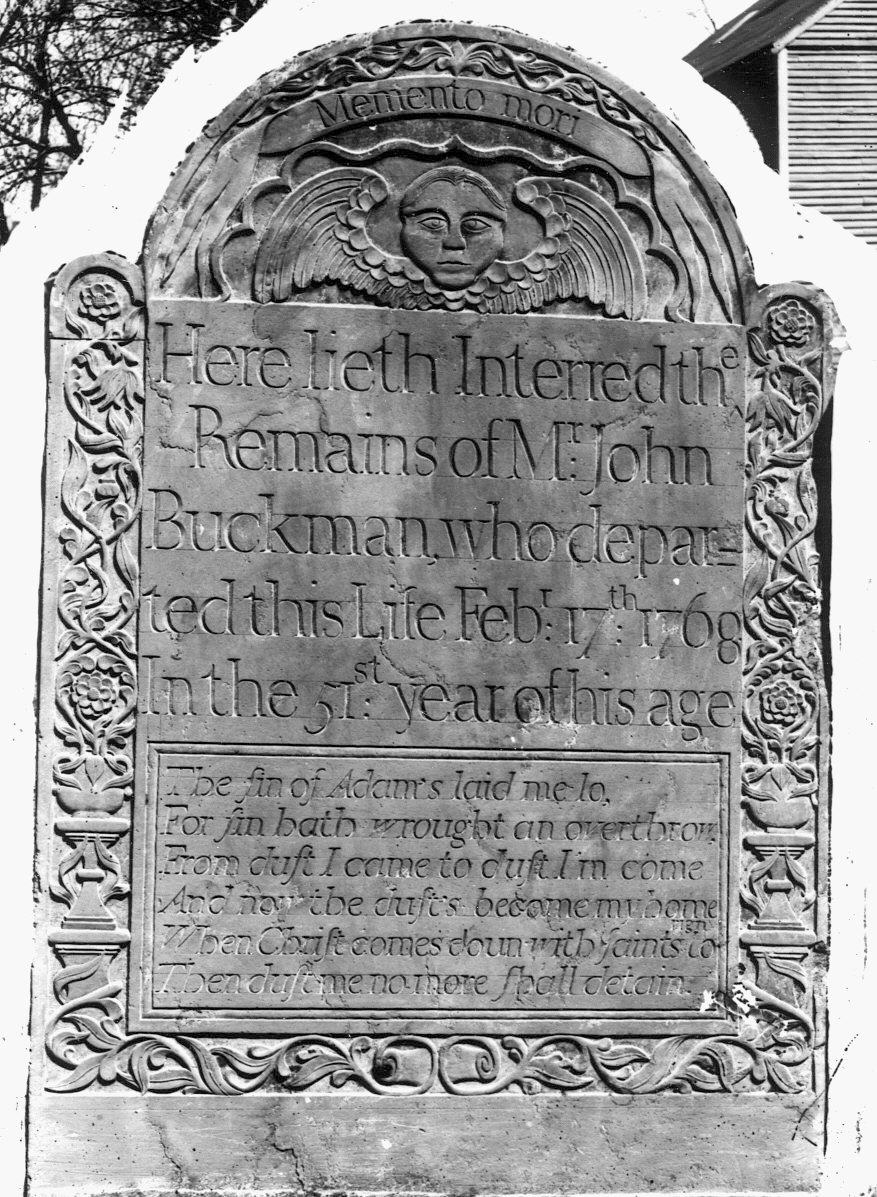 Memento mori
Here lieth Interred the
Remains of Mr: John
Buckman, who depar=
ted this Life Feb: 17th: 1768
In the 51st: year of his age
The ſin of Adam's laid me lo,
For ſin hath wrought an overthrow
From duſt I came to duſt I'm come
And now the duſt's become my home
When Chriſt comes down with ſaints to reign
Then duſt me no more ſhall detain.